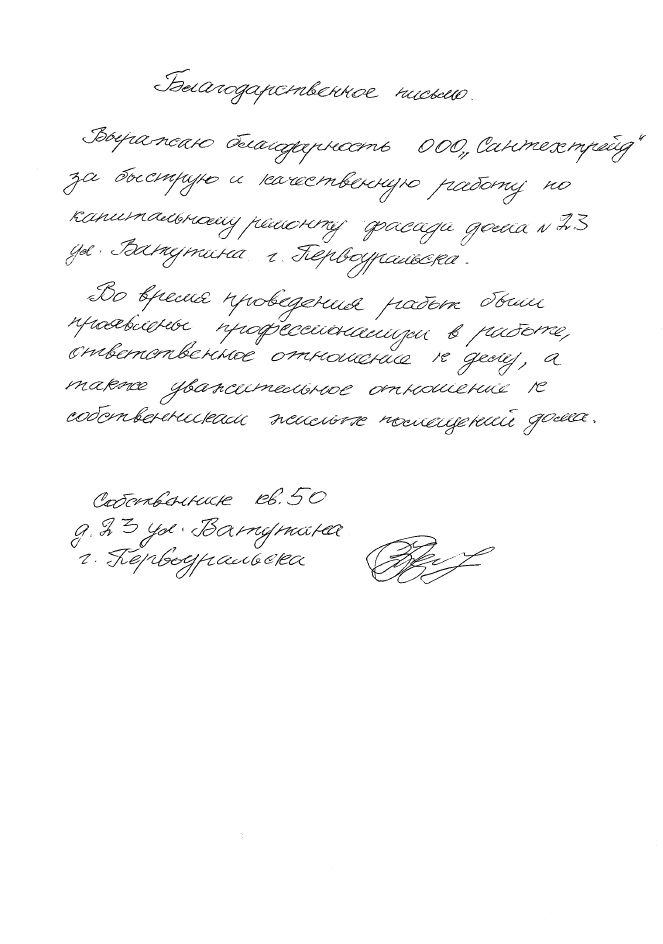 Благодарственное письмо.
Выражаю благодарность ООО „Сантехтрейд"
за быструю и качественную работу по
капитальному ремонту фасада дома № 23
ул. Ватутина г. Первоуральска.
Во время проведения работ были
проявлены профессионализм в работе,
ответственное отношение к делу, а
также уважительное отношение к
собственникам жилых помещений дома.
Собственник кв. 50
д. 23 ул. Ватутина
г. Первоуральска